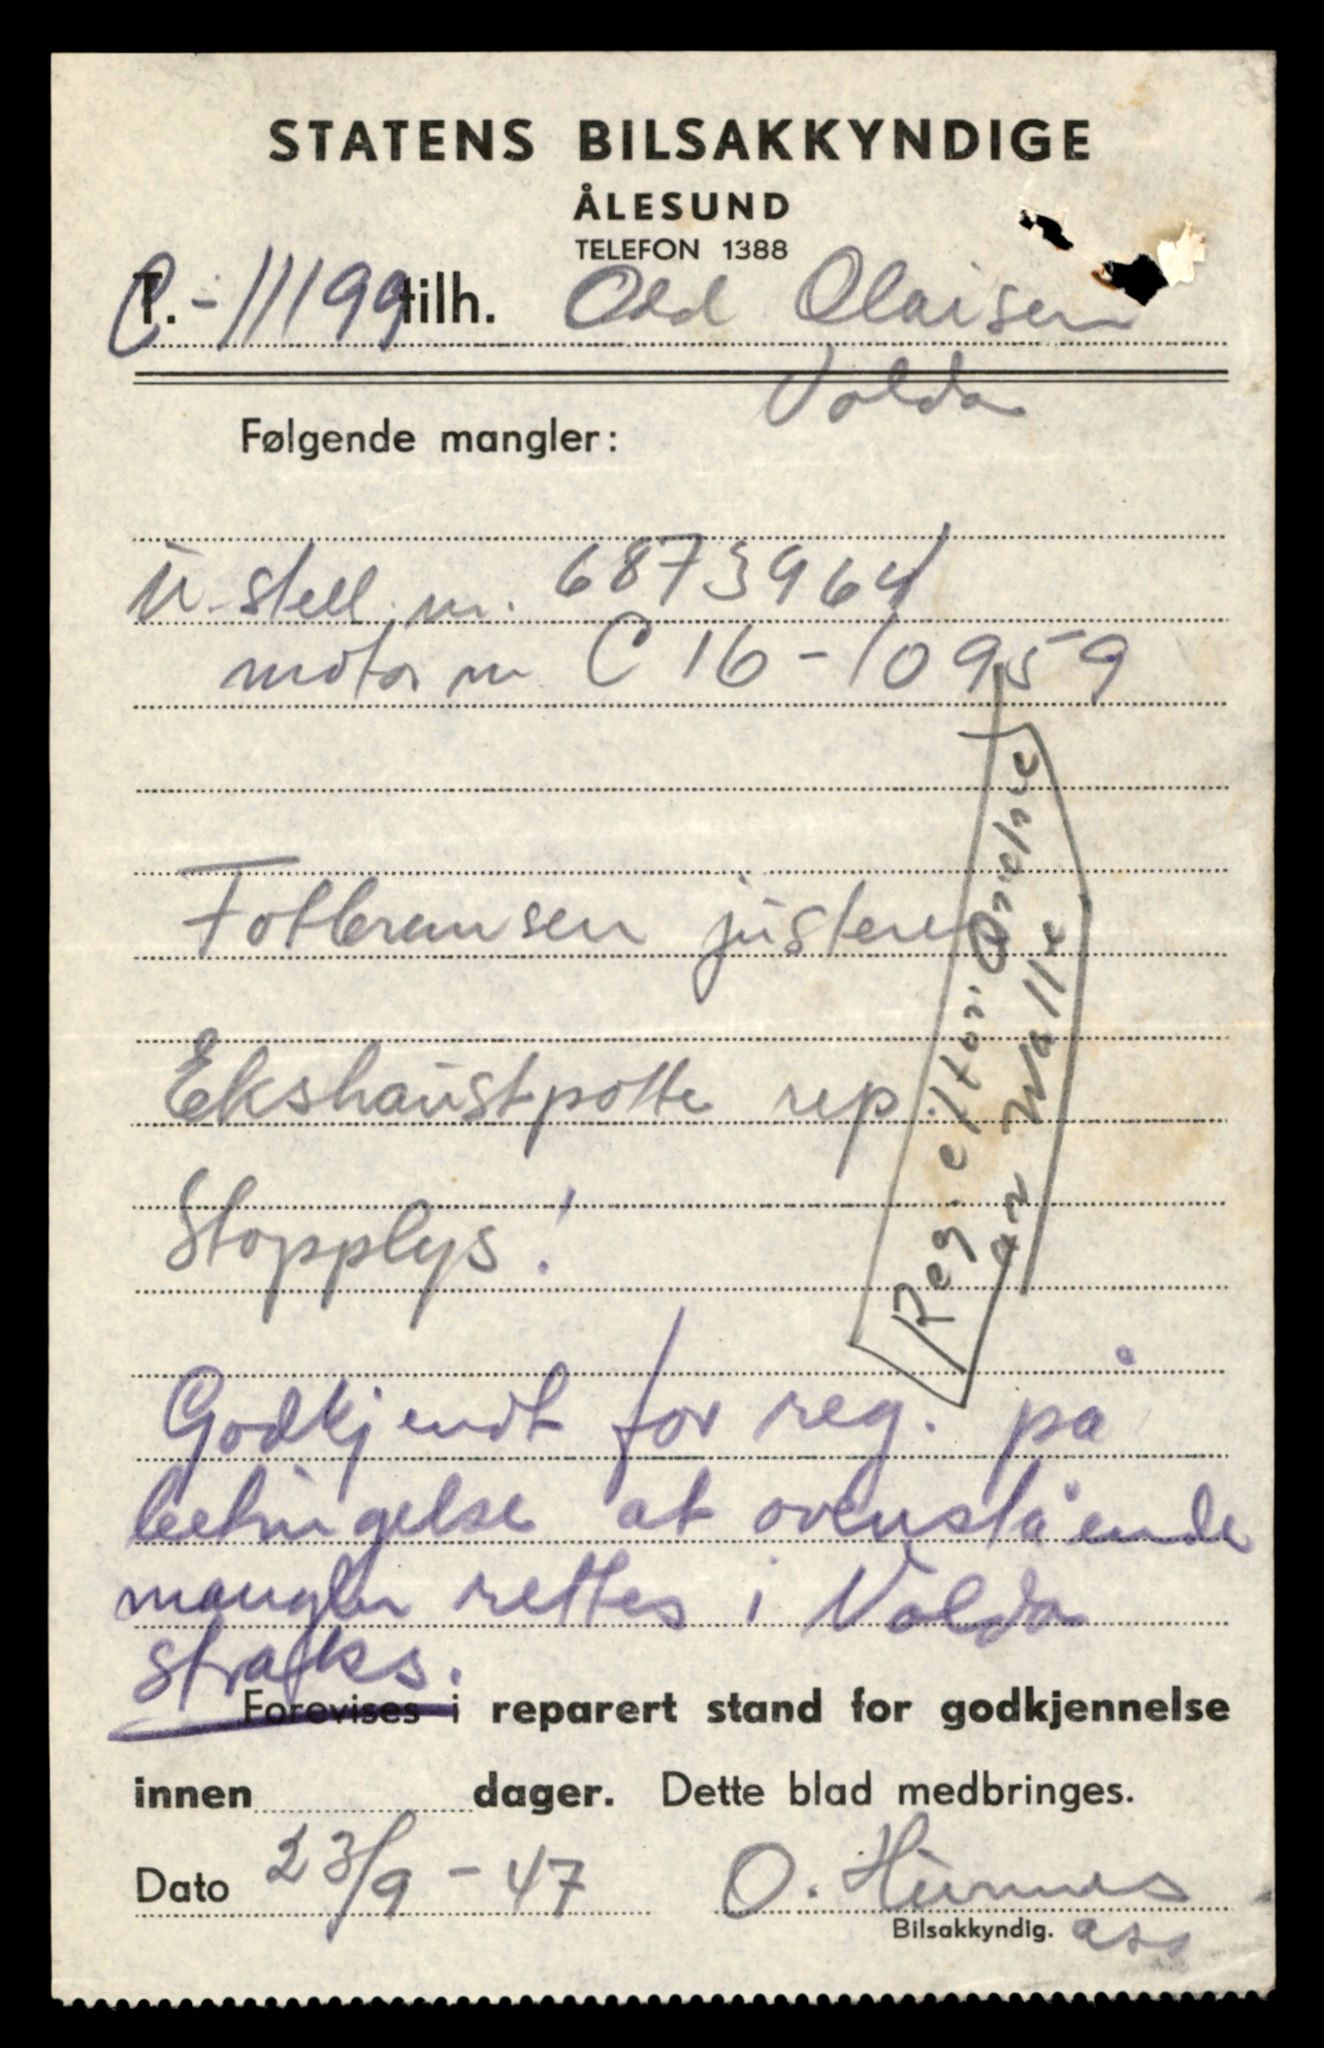 STATENS BILSAKKYNDIGE
ÅLESUND
TELEFON 1388
T. C-11199 tilh. Odd Olaisen
Volda
Følgende mangler:
U. stell nr. 6873964
motor nr C 16-10959
Fotbremsen justeres
Ekshaustpotte rep.
Stopplys!
Reg. etter
av Walle
Godkjendt for reg. på
betingelse at ovenstående
mangler rettes i Volda
straks.
Forevises i reparert stand for godkjennelse
innen dager. Dette blad medbringes.
Dato 23/9-47 O.
Bilsakkyndig. ass